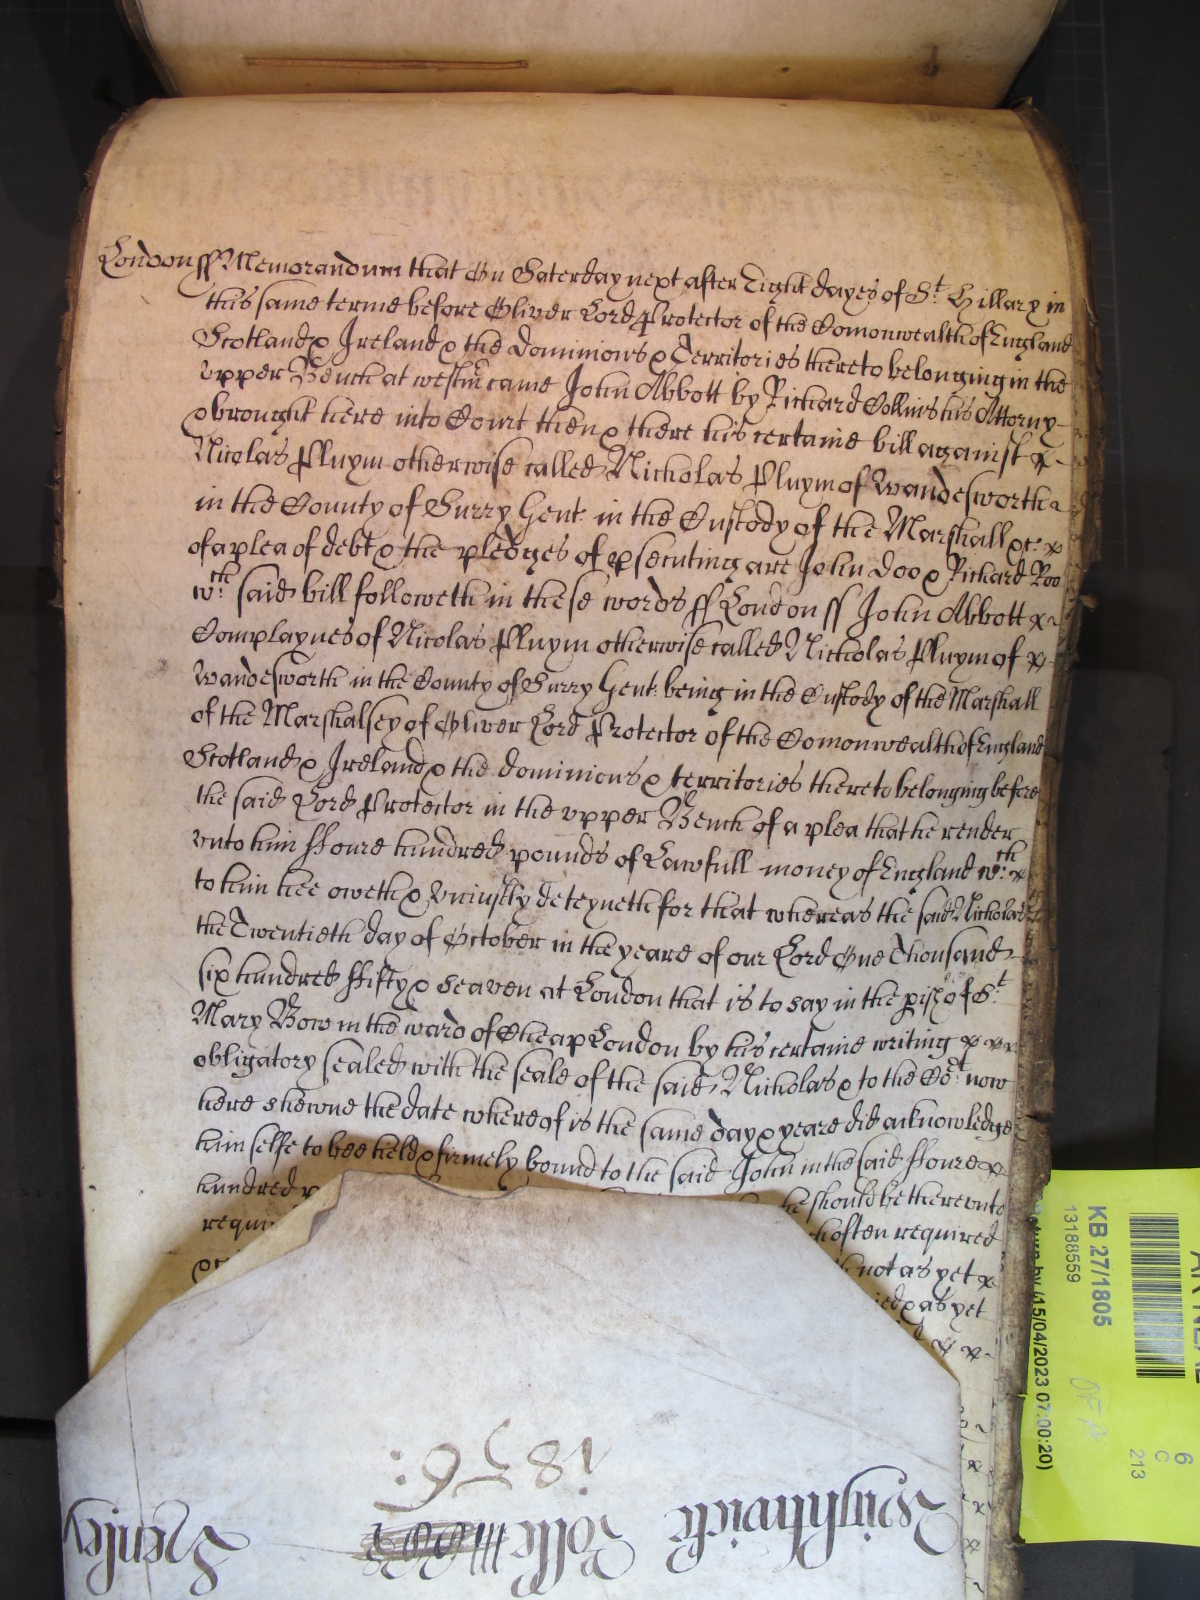 London ss Memorandum that On Saterday next after Eight dayes of St. Hillary in
this same terme before Oliver Lord Protector of the Comonwealth of England
Scotland & Ireland & the Dominions & Territories thereto belonging in the
vpper Bench at westmr came John Abbott by Richard Collins his Attorny
& brought here into Court then & there his certaine bill against
Nicolas Pluym otherwise called Nicholas Pluym of Wandesworth
in the County of Surry Gent. in the Custody of the Marshall &c.
of a plea of debt & the pledges of psecuting are John Doo & Richard Roo
wch. said bill followeth in these words ss London ss John Abbott
Complaynes of Nicolas Pluym otherwise called Nicholas Pluym of
Wandesworth in the County of Surry Gent. being in the Custody of the Marshall
of the Marshalsey of Oliver Lord Protector of the Comonwealth of England
Scotland & Ireland & the dominions & territories thereto belonging before
the said Lord Protector in the vpper Bench of a plea that he render
vnto him ffoure hundred pounds of Lawfull money of England wch.
to him hee oweth & Vniustly deteyneth for that whereas the said Nicholas
the Twentieth day of October in the yeare of our Lord One Thousand
six hundred ffifty & seaven at London that is to say in the pish of St.
Mary Bow in the ward of Cheap London by his certaine writing
obligatory sealed with the seale of the said Nicholas & to the Cot. now
here shewne the date whereof is the same day & yeare did acknowledge
him selfe to bee held & firmely bound to the said John in the said ffoure
hundred p he should be therevnto
requi often required
not as yet
& as yet
Wightwick Rolle Henley
1856:
KB 27/1805
13188559
6
C
213
Return by (15/04/2023 07:00:20)